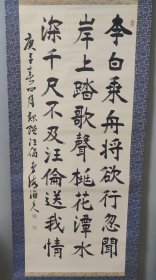 李白乘舟将欲行忽聞
岸上踏歌聲桃花潭水
深千尺不及汪倫送我情
庚子 四月